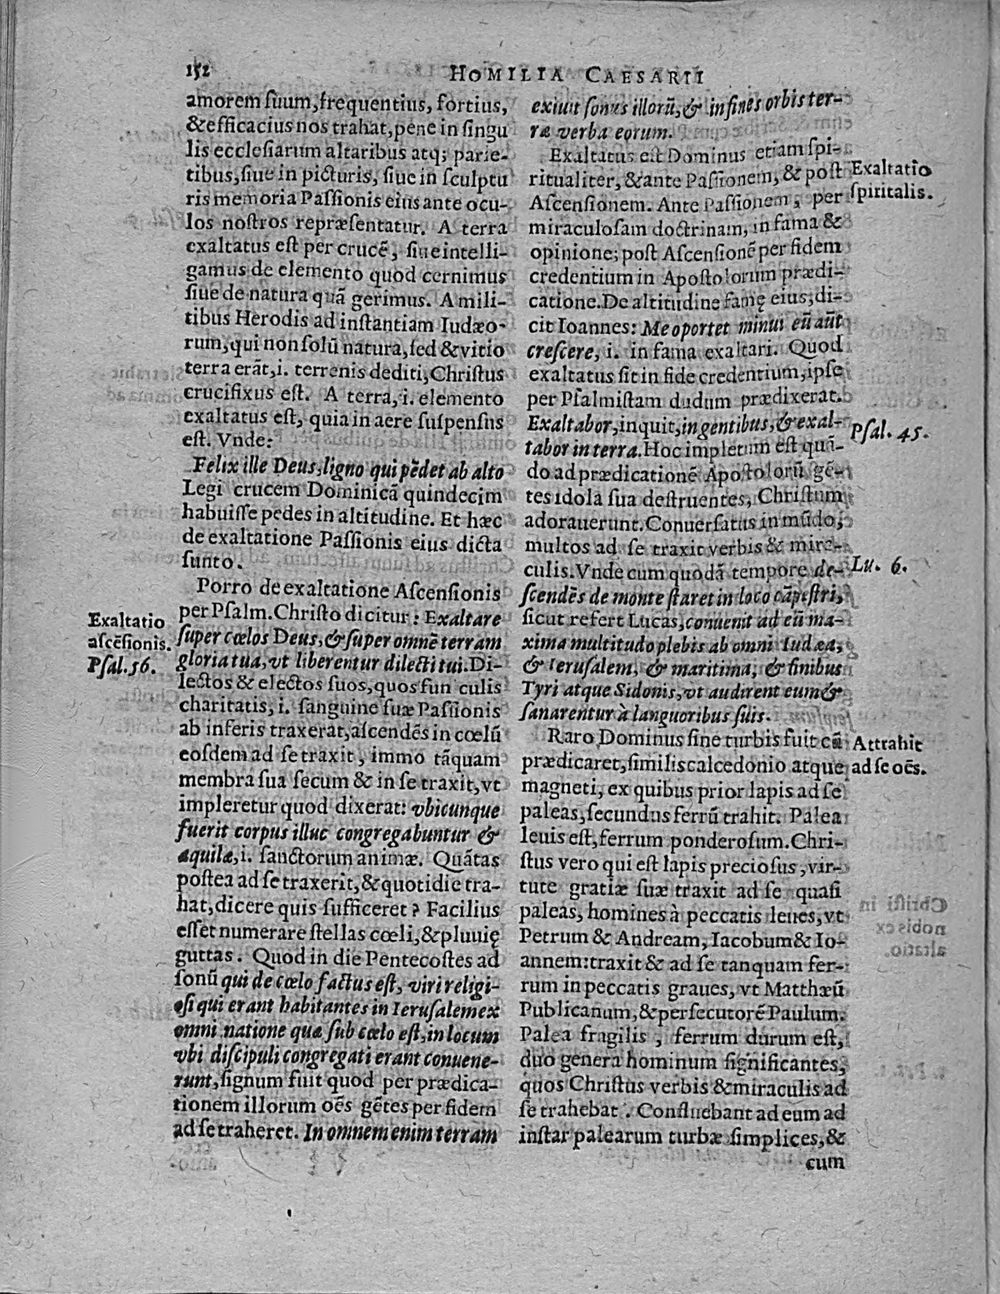 152 HOMILIA CAESARII
amorem suum, frequentius, fortius,
& efficacius nos trahat, pene in singu
lis ecclesiarum altaribus atq; parie-
tibus, siue in picturis, siue in sculptu
ris memoria Passionis eius ante ocu-
los nostros repræsentatur. A terra
exaltatus est per crucē, siue intelli-
gamus de elemento quod cernimus
siue de natura quā gerimus. A mili-
tibus Herodis ad instantiam Iudæo-
rum, qui non solū natura, sed & vitio
terra erāt, i. terrenis dediti, Christus
crucifixus est. A terra, i. elemento
exaltatus est, quia in aere suspensus
est. Vnde:
Felix ille Deus, ligno qui pēdet ab alto
Legi crucem Dominicā quindecim
habuisse pedes in altitudine. Et hæc
de exaltatione Passionis eius dicta
sunto.
Porro de exaltatione Ascensionis
per Psalm. Christo dicitur: Exaltare
super cœlos Deus, & super omnē terram
gloria tua, vt liberentur dilecti tui. Di-
lectos & electos suos, quos funiculis
charitatis, i. sanguine suæ Passionis
ab inferis traxerat, ascendēs in cœlū
eosdem ad se traxit, immo tāquam
membra sua secum & in se traxit, vt
impleretur quod dixerat: vbicunque
fuerit corpus illuc congregabuntur &
aquilæ, i. sanctorum animæ. Quātas
postea ad se traxerit, & quotidie tra-
hat, dicere quis sufficeret? Facilius
esset numerare stellas cœli, & pluuię
guttas. Quod in die Pentecostes ad
sonū qui de cœlo factus est, viri religi-
osi qui erant habitantes in Ierusalem ex
omni natione quæ sub cœlo est, in locum
vbi discipuli congregati erant conuene-
runt, signum fuit quod per prædica-
tionem illorum oēs gētes per fidem
ad se traheret. In omnem enim terram
Exaltatio
ascēsionis.
Psal. 56.
exiuit sonus illorū, & in fines orbis ter-
ræ verba eorum.
Exaltatus est Dominus etiam spi-
ritualiter, & ante Passionem, & post
Ascensionem. Ante Passionem, per
miraculosam doctrinam, in fama &
opinione; post Ascensionē per fidem
credentium in Apostolorum prædi-
catione. De altitudine famę eius, di-
cit Ioannes: Me oportet minui eū aūt
crescere, i. in fama exaltari. Quod
exaltatus sit in fide credentium, ipse
per Psalmistam dudum prædixerat.
Exaltabor, inquit, in gentibus, & exal-
tabor in terra. Hoc impletum est quā-
do ad prædicationē Apostolorū gē-
tes idola sua destruentes, Christum
adorauerunt. Conuersatus in mūdo,
multos ad se traxit verbis & mira-
culis. Vnde cum quodā tempore de-
scendēs de monte staret in loco cāpestri,
sicut refert Lucas, conuenit ad eū ma-
xima multitudo plebis ab omni Iudæa,
& Ierusalem, & maritima, & finibus
Tyri atque Sidonis, vt audirent eum &
sanarentur à languoribus suis.
Raro Dominus sine turbis fuit cū
prædicaret, similis calcedonio atque
magneti, ex quibus prior lapis ad se
paleas, secundus ferrū trahit. Palea
leuis est, ferrum ponderosum. Chri-
stus vero qui est lapis preciosus, vir-
tute gratiæ suæ traxit ad se quasi
paleas, homines à peccatis leues, vt
Petrum & Andream, Iacobum & Io-
annem: traxit & ad se tanquam fer-
rum in peccatis graues, vt Matthæū
Publicanum, & persecutorē Paulum.
Palea fragilis, ferrum durum est,
duo genera hominum significantes,
quos Christus verbis & miraculis ad
se trahebat. Confluebant ad eum ad
instar palearum turbæ simplices, &
cum
Exaltatio
spiritalis.
Psal. 45.
Lu. 6.
Attrahit
ad se oēs.